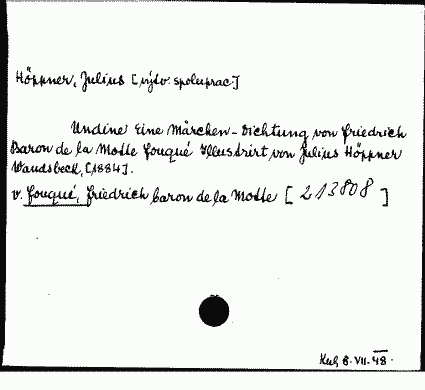 Höppner, Julius [výtv. spoluprac.]
Undine Eine Märchen-Dichtung von Friedrich
Baron de la Motte Fouqué Illustrirt von Julius Höppner
Wandsbeck, [1884].
v. Fouqué, Friedrich Baron de la Motte [213808]
6.VII.48.